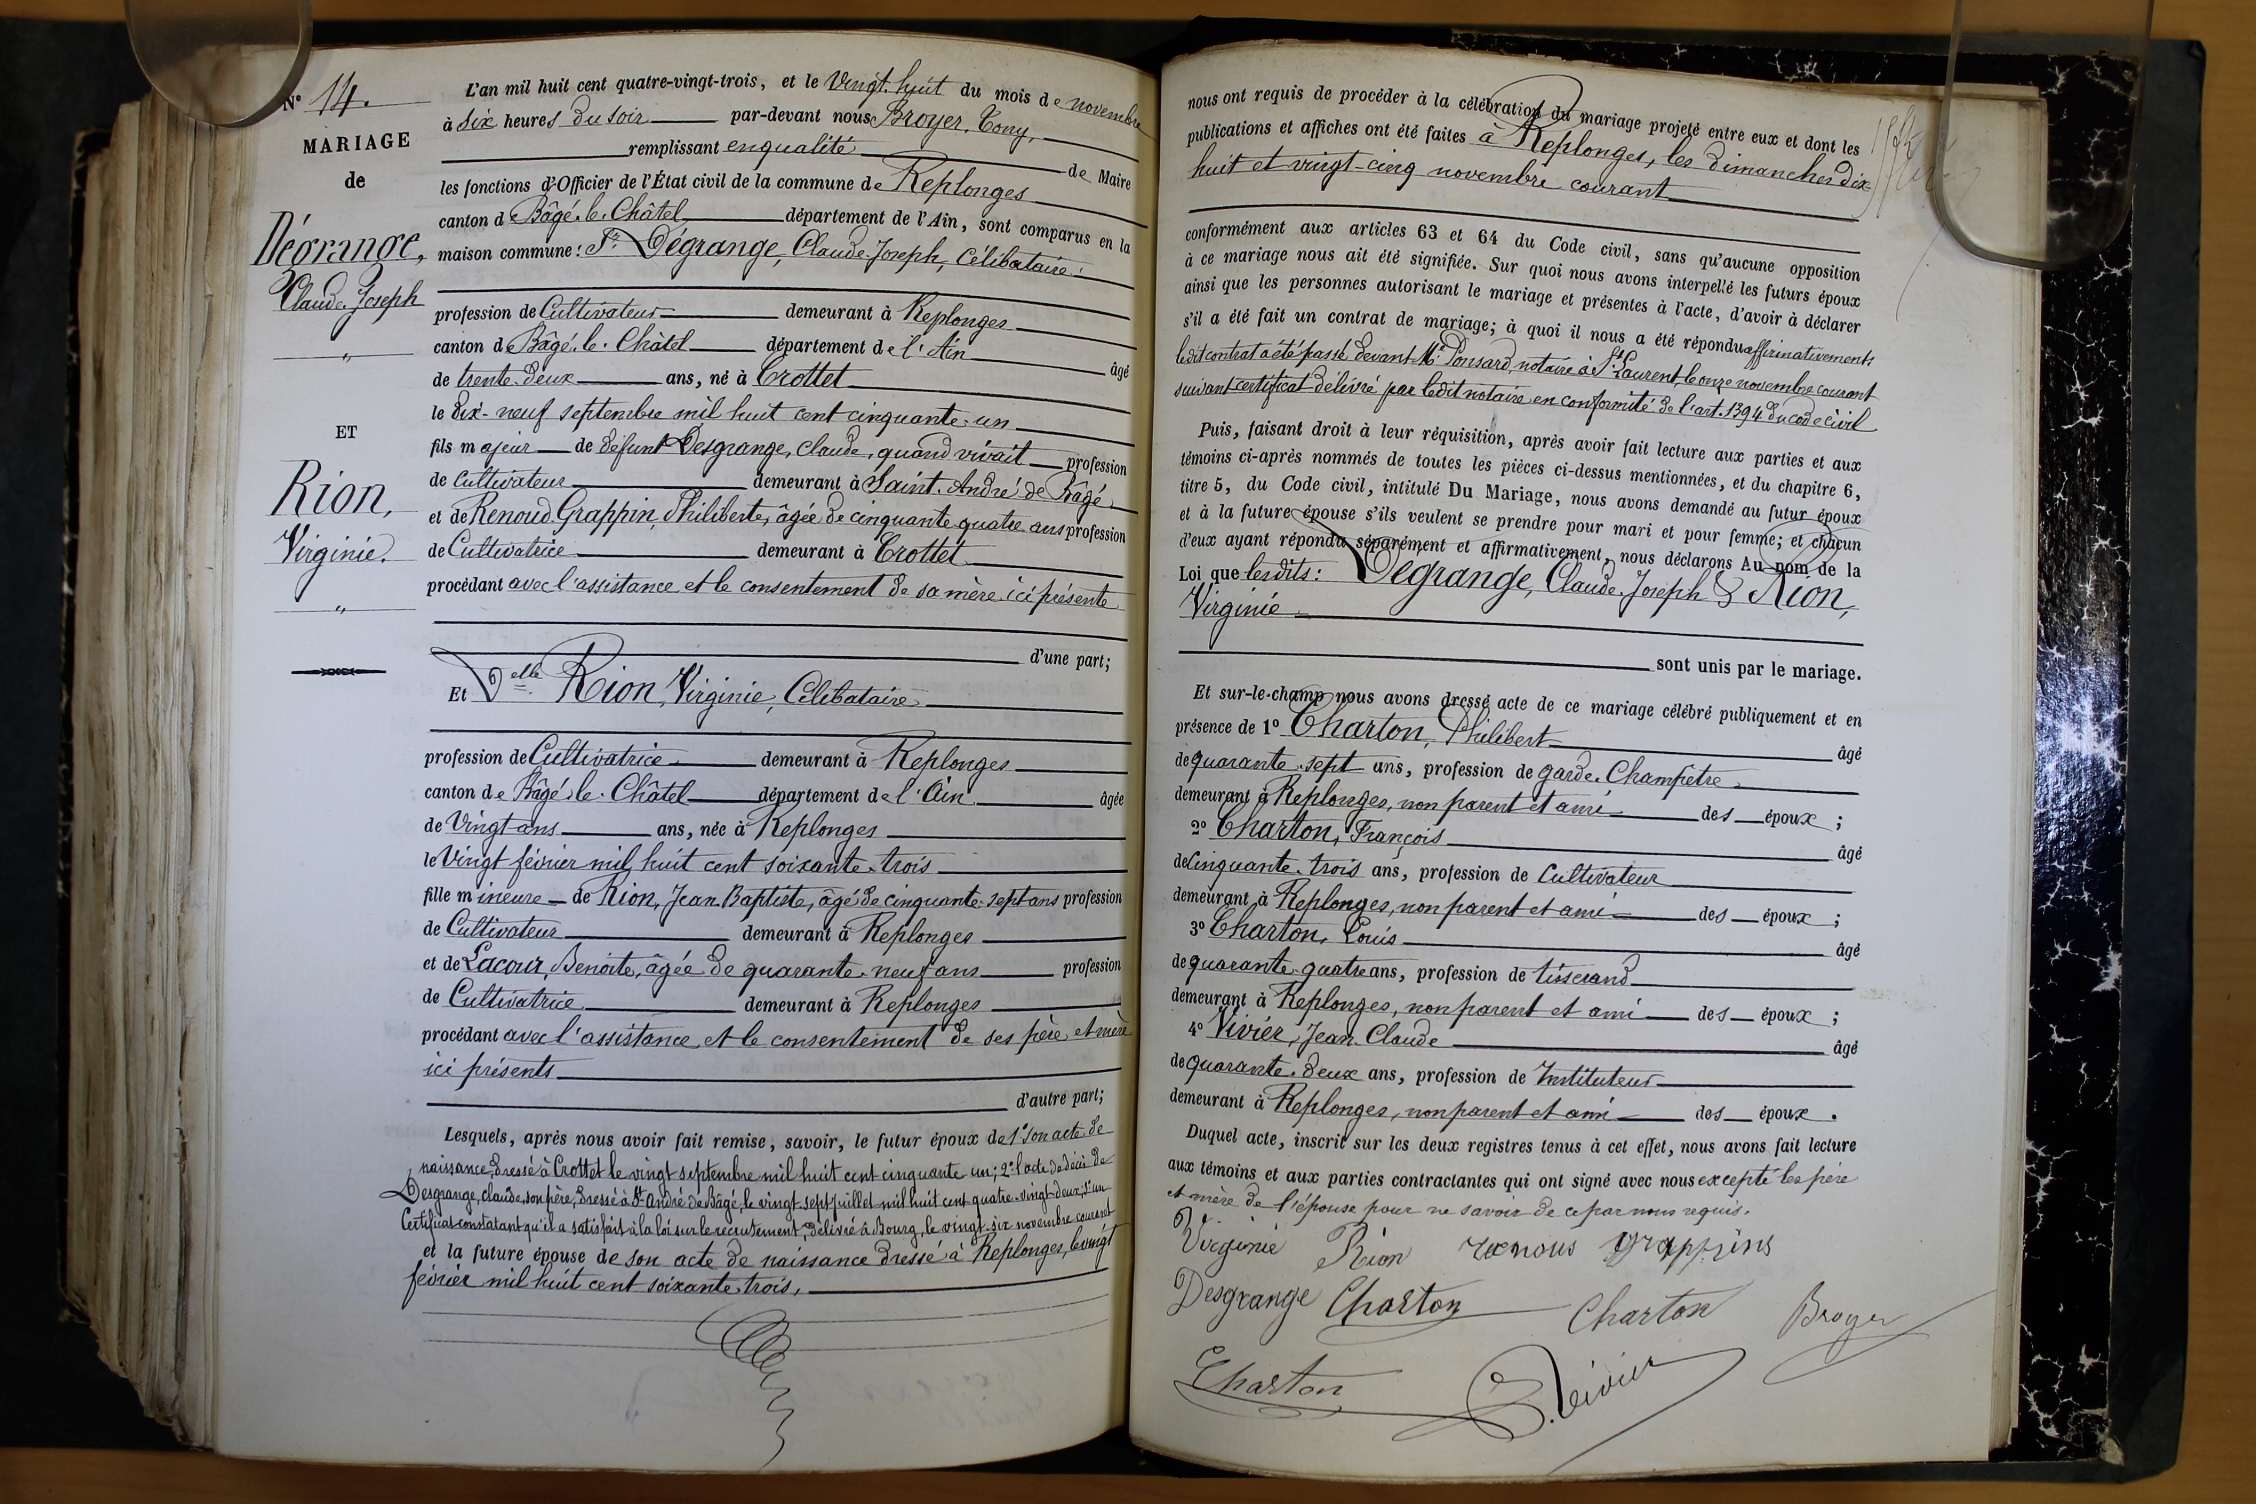 N° 14.
MARIAGE
de
Dégrange,
Claude Joseph
"
ET
Rion,
Virginie.
"
L'an mil huit cent quatre-vingt-trois, et le Vingt-huit du mois de novembre
à Six heures du soir par-devant nous Broyer, Tony,
remplissant en qualité de Maire
les fonctions d'Officier de l'État civil de la commune de Replonges
canton de Bâgé-le-Châtel département de l'Ain, sont comparus en la
maison commune: Sr Dégrange, Claude Joseph, Célibataire
profession de Cultivateur demeurant à Replonges
canton de Bâgé-le-Châtel département de l'Ain âgé
de trente-deux ans, né à Crottet
le dix-neuf septembre mil huit cent cinquante-un
fils majeur de défunt Desgrange, Claude, quand vivait profession
de Cultivateur demeurant à Saint-André de Bâgé
et de Renoud Grappin, Philiberte, âgée de cinquante quatre ans profession
de Cultivatrice demeurant à Crottet
procédant avec l'assistance et le consentement de sa mère ici présente
d'une part;
Et Delle Rion, Virginie, Célibataire
profession de Cultivatrice demeurant à Replonges
canton de Bâgé-le-Châtel département de l'Ain âgée
de Vingt ans ans, née à Replonges
le Vingt février mil huit cent soixante-trois
fille mineure de Rion, Jean Baptiste, âgé de cinquante-sept ans profession
de Cultivateur demeurant à Replonges
et de Lacour, Benoite, âgée de quarante-neuf ans profession
de Cultivatrice demeurant à Replonges
procédant avec l'assistance et le consentement de ses père et mère
ici présents
d'autre part;
Lesquels, après nous avoir fait remise, savoir, le futur époux de 1° son acte de
naissance dressé à Crottet le vingt septembre mil huit cent cinquante un; 2° l'acte de décès de
Desgrange, Claude, son père, dressé à St André de Bâgé, le vingt-sept juillet mil huit cent quatre-vingt-deux; 3° un
Certificat constatant qu'il a satisfait à la loi sur le recrutement, délivré à Bourg, le vingt-six novembre courant
et la future épouse de son acte de naissance dressé à Replonges, le vingt
février mil huit cent soixante-trois,
nous ont requis de procéder à la célébration du mariage projeté entre eux et dont les
publications et affiches ont été faites à Replonges, les dimanches dix-
huit et vingt-cinq novembre courant
conformément aux articles 63 et 64 du Code civil, sans qu'aucune opposition
à ce mariage nous ait été signifiée. Sur quoi nous avons interpellé les futurs époux
ainsi que les personnes autorisant le mariage et présentes à l'acte, d'avoir à déclarer
s'il a été fait un contrat de mariage; à quoi il nous a été répondu affirmativement
ledit contrat a été passé devant Me Ponsard, notaire à St Laurent, le onze novembre courant
suivant certificat délivré par ledit notaire en conformité de l'art. 1394 du code civil
Puis, faisant droit à leur réquisition, après avoir fait lecture aux parties et aux
témoins ci-après nommés de toutes les pièces ci-dessus mentionnées, et du chapitre 6,
titre 5, du Code civil, intitulé Du Mariage, nous avons demandé au futur époux
et à la future épouse s'ils veulent se prendre pour mari et pour femme; et chacun
d'eux ayant répondu séparément et affirmativement, nous déclarons Au nom de la
Loi que lesdits: Dégrange, Claude Joseph & Rion,
Virginie
sont unis par le mariage.
Et sur-le-champ nous avons dressé acte de ce mariage célébré publiquement et en
présence de 1° Charton, Philibert âgé
de quarante-sept ans, profession de garde-Champêtre
demeurant à Replonges, non parent et ami des époux ;
2° Charton, François âgé
de Cinquante-trois ans, profession de Cultivateur
demeurant à Replonges, non parent et ami des époux ;
3° Charton, Louis âgé
de quarante-quatre ans, profession de tisserand
demeurant à Replonges, non parent et ami des époux ;
4° Vivier, Jean Claude âgé
de quarante-deux ans, profession de Instituteur
demeurant à Replonges, non parent et ami des époux .
Duquel acte, inscrit sur les deux registres tenus à cet effet, nous avons fait lecture
aux témoins et aux parties contractantes qui ont signé avec nous excepté les père
et mère de l'épouse pour ne savoir de ce par nous requis.
Virginie Rion renous grappins
Desgrange Charton Charton Broyer
Charton Vivier